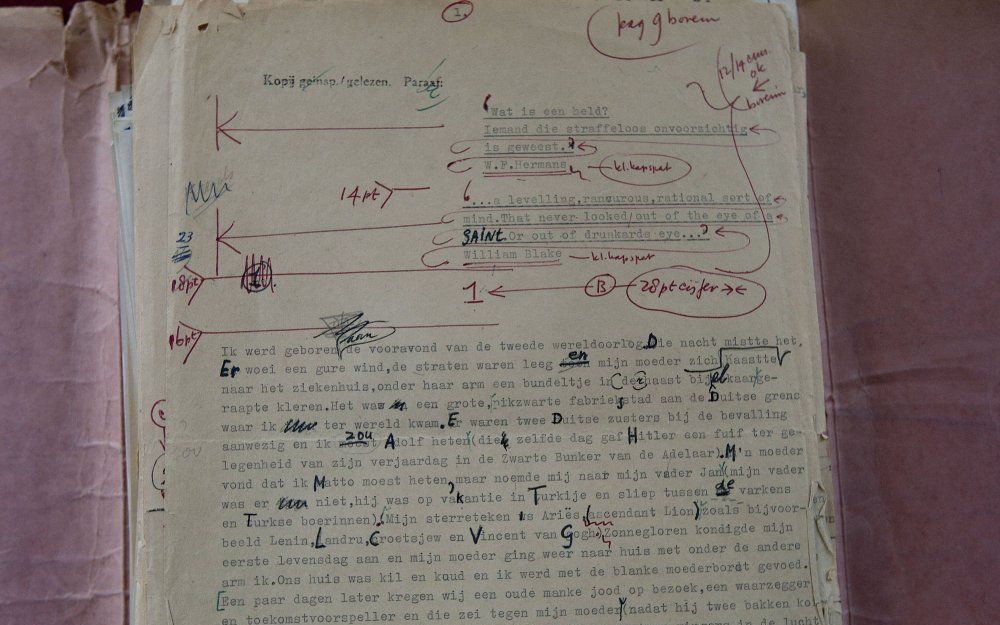 1.
pag 9 boven
12/14 cur. ok
boven
Kopij geïnsp./gelezen. Paraaf:
'Wat is een held?
Iemand die straffeloos onvoorzichtig
is geweest.'
W.F.Hermans kl.kapspat
14pt
'...a levelling,rancurous,rational sort of
mind.That never looked/out of the eye of a
SAINT.Or out of drunkards eye...'
William Blake kl.kapspat
23
18pt
1 B 28pt cijfer
16pt
Ik werd geboren de vooravond van de tweede wereldoorlog.Die nacht mistte het.
Er woei een gure wind,de straten waren leeg en mijn moeder zich haastte
naar het ziekenhuis,onder haar arm een bundeltje in der haast bij elkaar ge-
raapte kleren.Het was een grote,pikzwarte fabrieksstad aan de Duitse grens
waar ik ter wereld kwam.Er waren twee Duitse zusters bij de bevalling
aanwezig en ik zou Adolf heten(die zelfde dag gaf Hitler een fuif ter ge-
legenheid van zijn verjaardag in de Zwarte Bunker van de Adelaar).M'n moeder
vond dat ik Matto moest heten,maar noemde mij naar mijn vader Jan(mijn vader
was er niet,hij was op vakantie in Turkije en sliep tussen de varkens
en Turkse boerinnen)(Mijn sterreteken is Ariës,(ascendant Lion)zoals bijvoor-
beeld Lenin,Landru,Croetsjew en Vincent van Gogh)Zonnegloren kondigde mijn
eerste levensdag aan en mijn moeder ging weer naar huis met onder de andere
arm ik.Ons huis was kil en koud en ik werd met de blanke moederborst gevoed.
Een paar dagen later kregen wij een oude manke jood op bezoek,een waarzegger
en toekomstvoorspeller en die zei tegen mijn moeder(nadat hij twee bakken
in de lucht